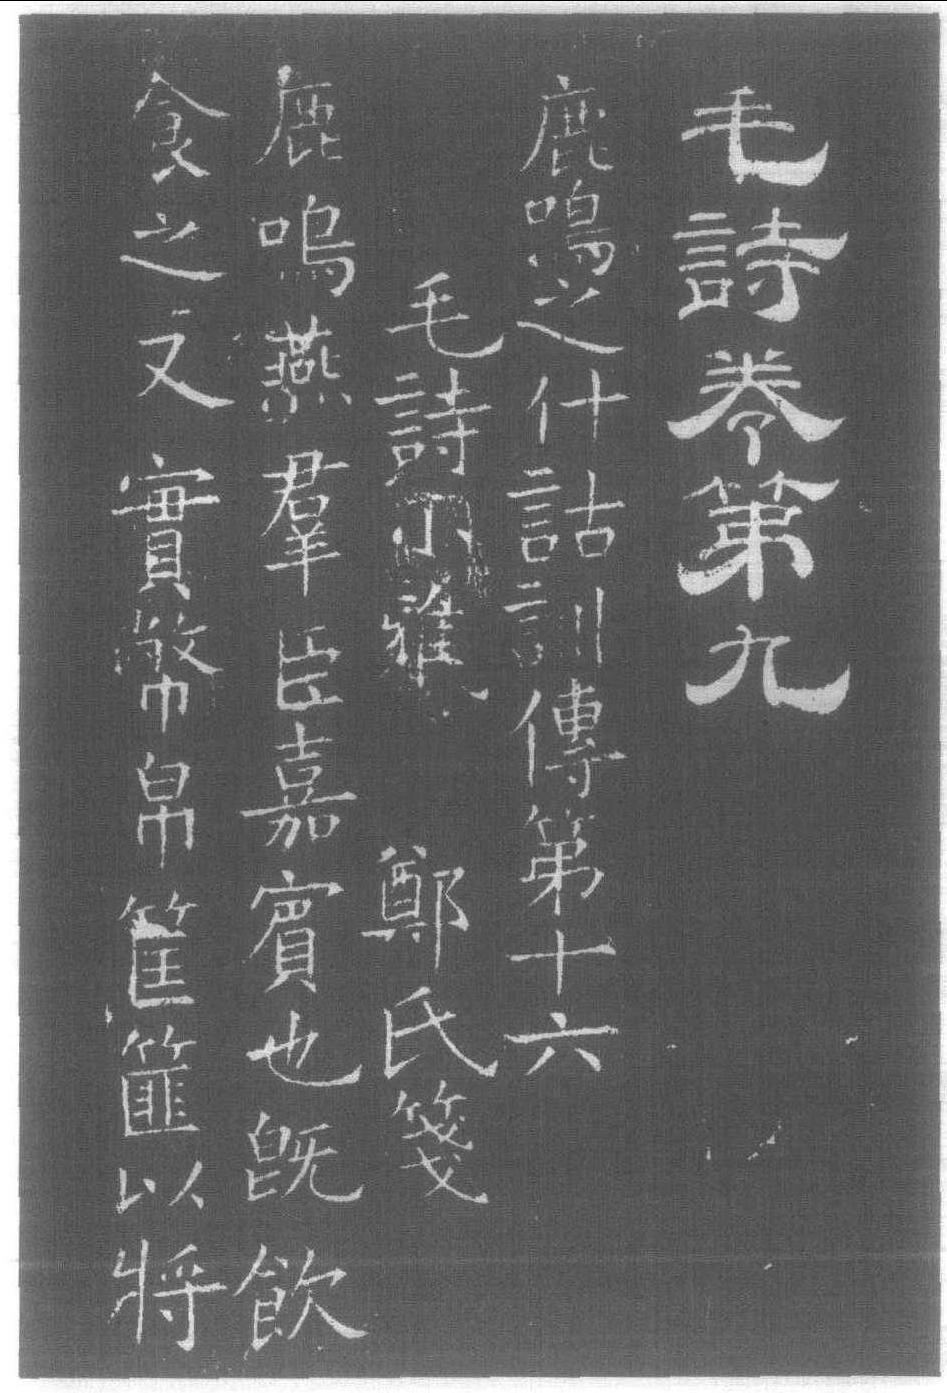 毛詩卷第九
鹿鳴之什詁訓傳第十六
毛詩小雅 鄭氏箋
鹿鳴燕羣臣嘉賓也旣飲
食之又實幣帛筐篚以將